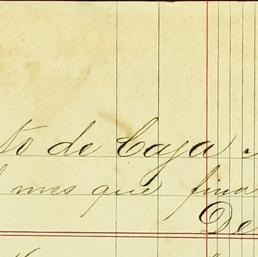 to de Caja
mes que fina
De